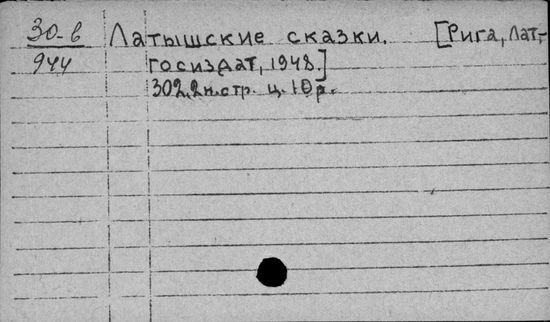 30-в Латышские сказки. [Рига, Лат,-
944 госиздат, 1948.]
302, 2н.стр. ц. 10р.